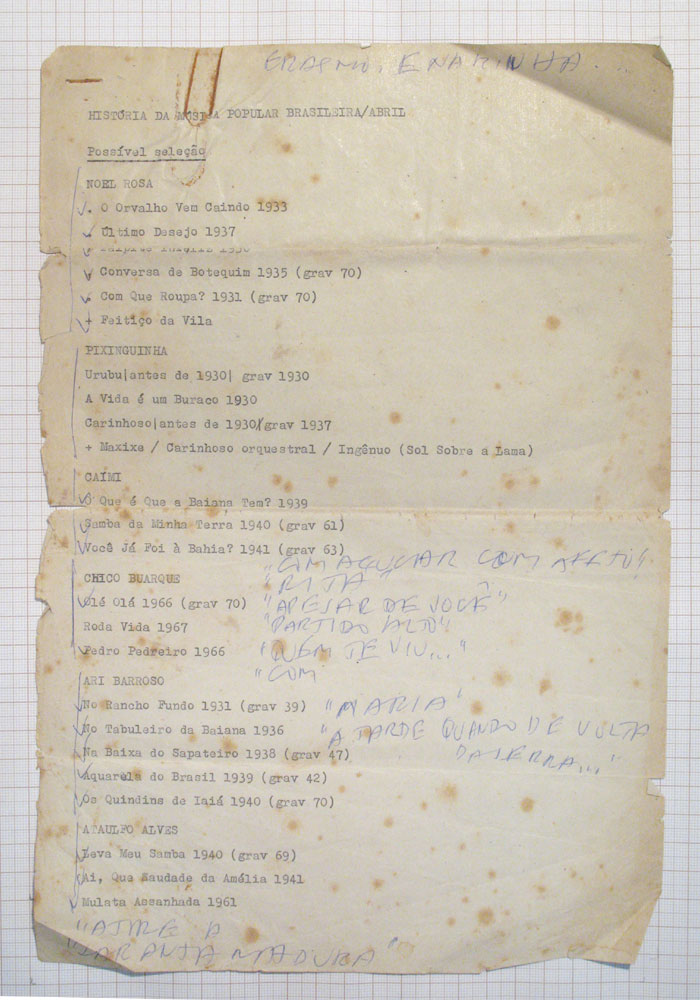 ERASMO, E NARINHA.
HISTÓRIA DA MÚSICA POPULAR BRASILEIRA/ABRIL
Possível seleção
NOEL ROSA
. O Orvalho Vem Caindo 1933
Último Desejo 1937
Conversa de Botequim 1935 (grav 70)
Com Que Roupa? 1931 (grav 70)
+ Feitiço da Vila
PIXINGUINHA
Urubu|antes de 1930| grav 1930
A Vida é um Buraco 1930
Carinhoso|antes de 1930/grav 1937
+ Maxixe / Carinhoso orquestral / Ingênuo (Sol Sobre a Lama)
CAÍMI
O Que é Que a Baiana Tem? 1939
Samba da Minha Terra 1940 (grav 61)
Você Já Foi à Bahia? 1941 (grav 63)
"COM AÇUCAR COM AFETO"
CHICO BUARQUE "RITA"
Olé Olá 1966 (grav 70) "APESAR DE VOCÊ"
Roda Vida 1967 "PARTIDO ALTO"
Pedro Pedreiro 1966 "QUEM TE VIU..."
"COM
ARI BARROSO
No Rancho Fundo 1931 (grav 39) "MARIA"
No Tabuleiro da Baiana 1936 "A TARDE QUANDO DE VOLTA
Na Baixa do Sapateiro 1938 (grav 47) DA SERRA..."
Aquarela do Brasil 1939 (grav 42)
Os Quindins de Iaiá 1940 (grav 70)
ATAULFO ALVES
Leva Meu Samba 1940 (grav 69)
Ai, Que Saudade da Amélia 1941
Mulata Assanhada 1961
A
"LARANJA MADURA"